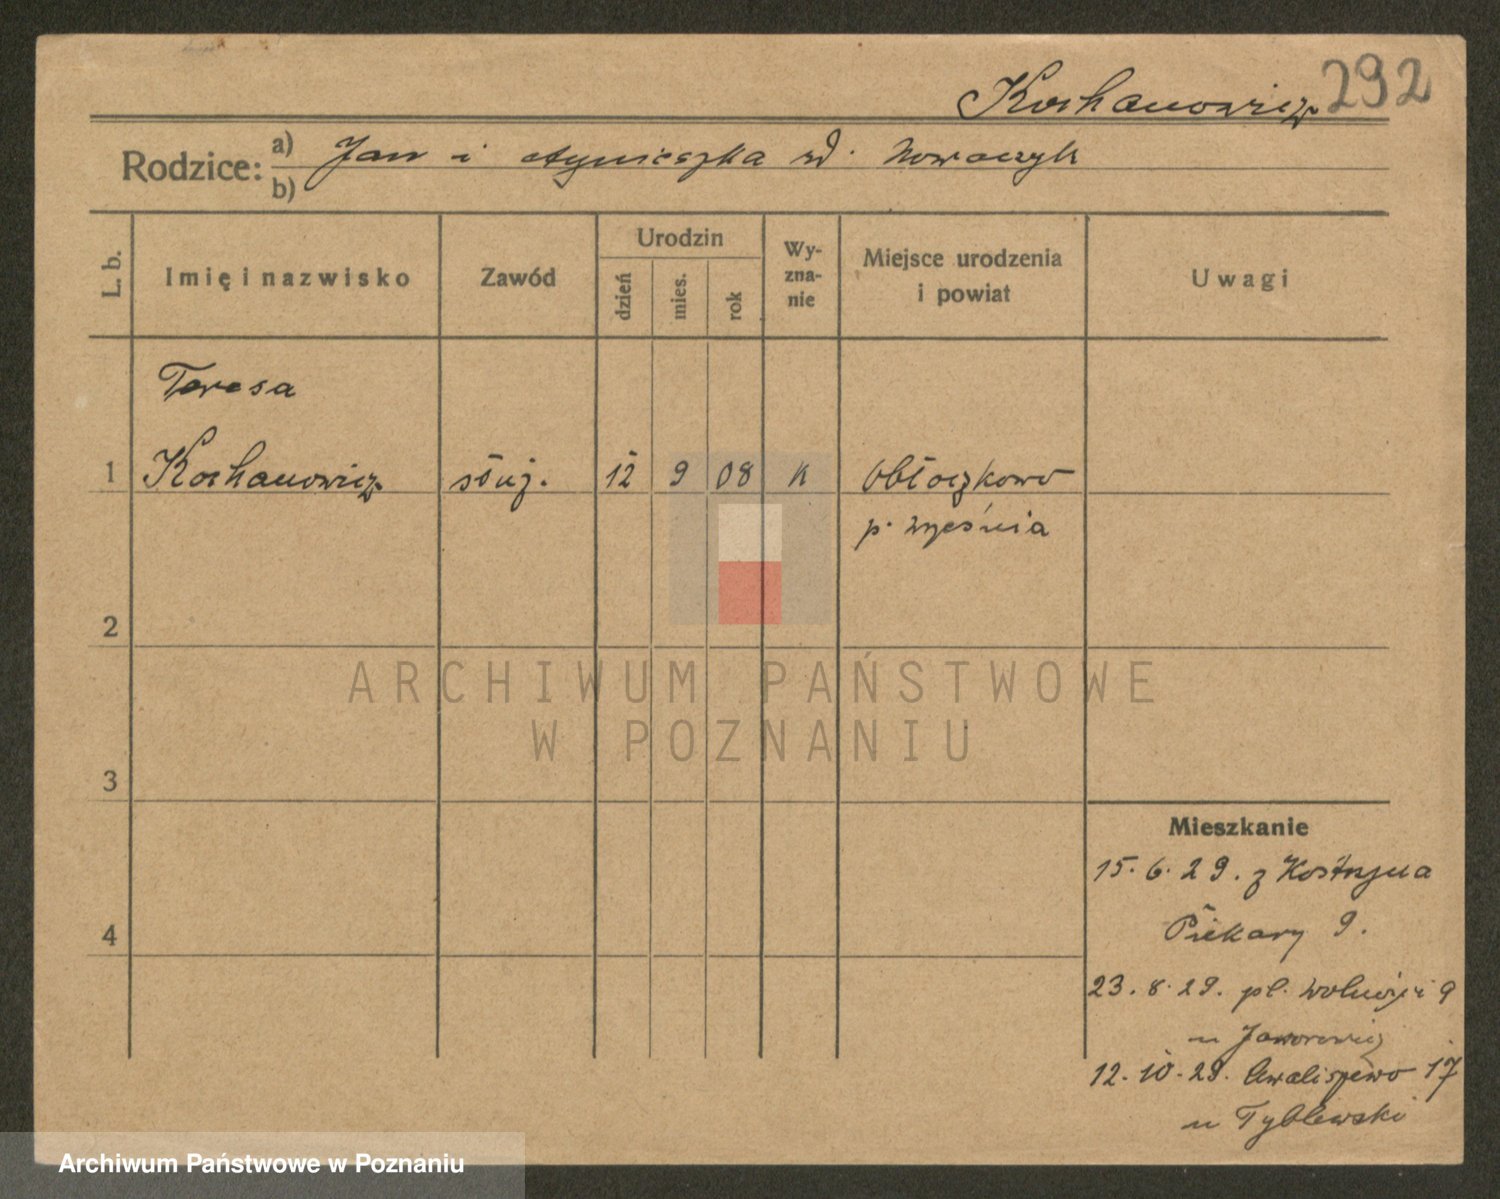 Kochanowicz 292
Rodzice: a) Jan i Agnieszka zd. Nowaczyk
b)
L. b. Imię i nazwisko Zawód Urodzin dzień mies. rok Wy-zna-nie Miejsce urodzenia i powiat Uwagi
Teresa
1 Kochanowicz służ. 12 9 08 K Obłoczkowo
p. Września
2
3
4
Mieszkanie
15.6.29. z Kostrzyna
Piekary 9.
23.8.29. pl. Wolności 9
u Jaworowicz
12.10.29. Chwaliszewo 17
u Tyblewski
ARCHIWUM PAŃSTWOWE
W POZNANIU
Archiwum Państwowe w Poznaniu